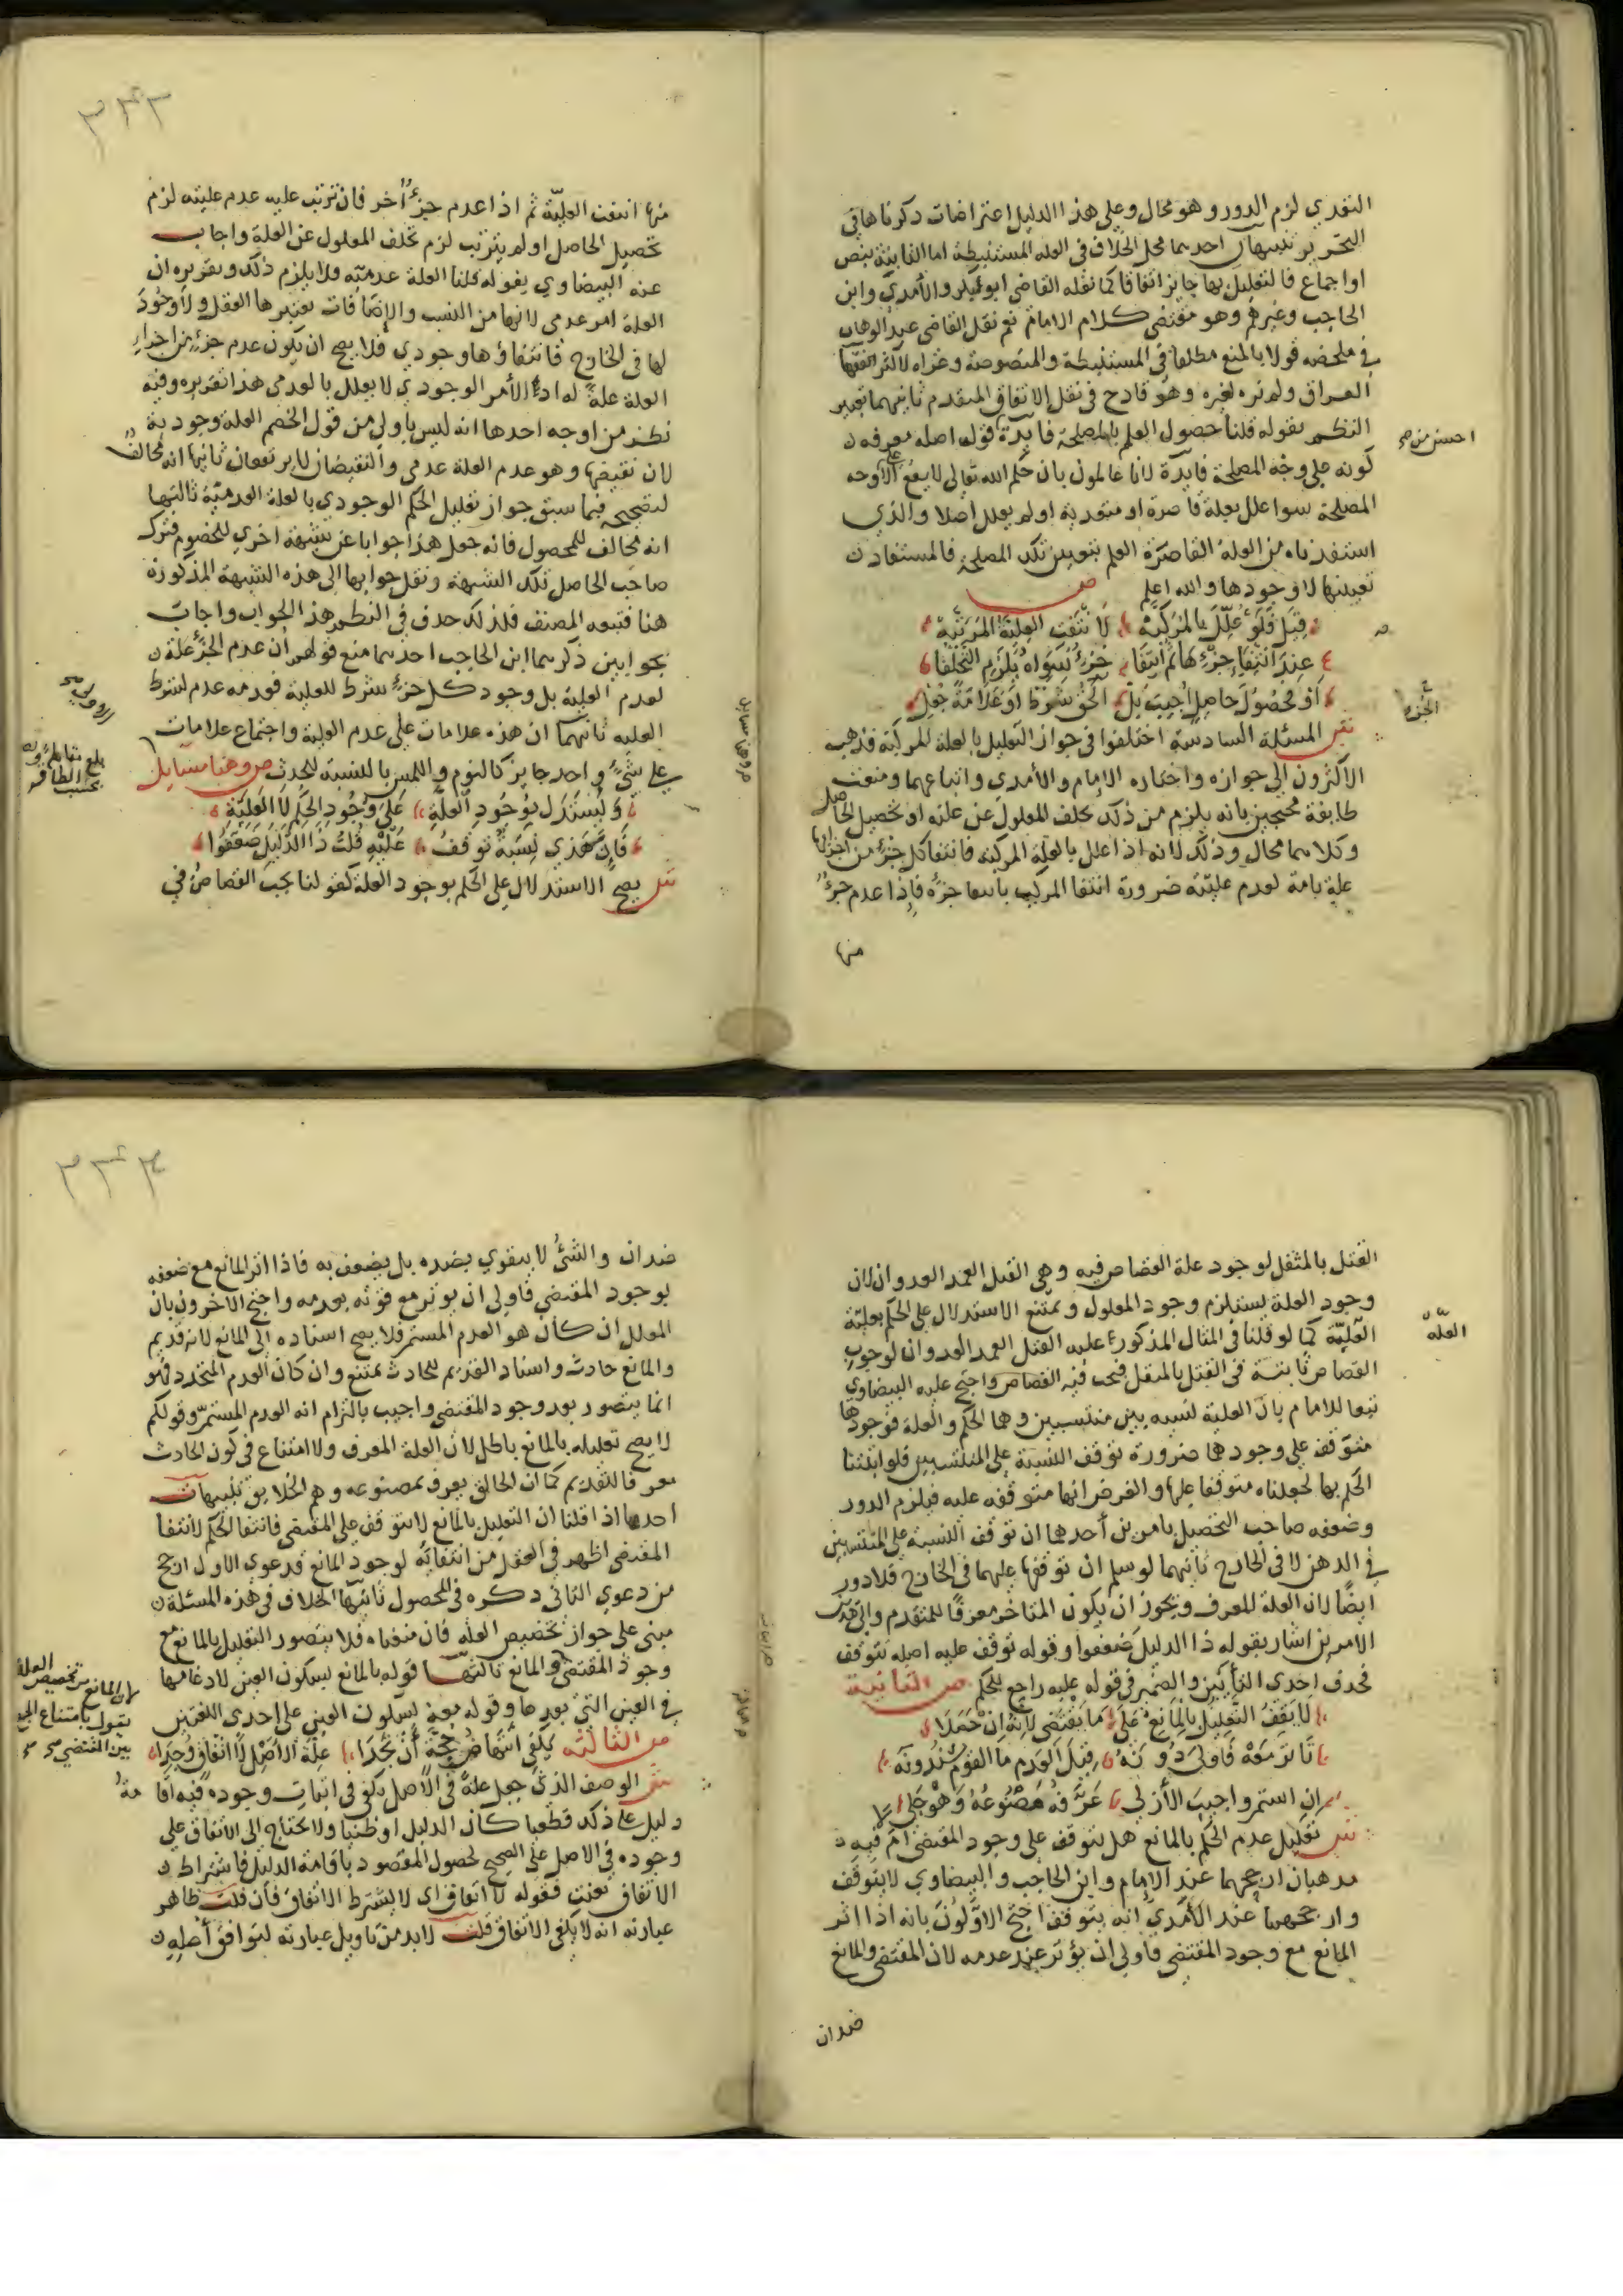 التعدي لزم الدور وهو محال وعلى هذا الدليل اعتراضات ذكرناها في
التحرير تنبيهان احدهما محل الخلاف في العله المستنبطة اما الثابتة بنص
او اجماع فالتعليل بها جايز اتفاقا كما نقله القاضي ابو بكر والأمدي وابن
الحاجب وغيرهم وهو مقتضى كلام الامام نعم نقل القاضي عبد الوهاب
في ملخصه قولا بالمنع مطلقا في المستنبطة والمنصوصة وعزاه لاكثر الفقها
العراق ولم نره لغيره وهو قادح في نقل الاتفاق المتقدم ثانيهما تعبير
النظم بقوله قلنا حصول العلم بالمصلحة فايدة قوله اصله معرفه ن
احسن من
كونه على وجه المصلحة فايدة لانا عالمون بان حكم الله تعالى لا يقع الا لاوجه
المصلحة سوا علل بعلة قاصرة او متعدية او لم يعلل اصلا والذي
استفدناه من العلة القاصرة العلم بتعيين تلك المصلحة فالمستفاد ن
تعيينها لا وجودها والله اعلم ص
قيل فلو علل بالمركبه لانتفت العلية المرتبه
عند انتفا جزء لها ثم انتفا جزء سواه يلزم التخلفا
او محصول حاصل اجيب بل الحق شرط او علامة جعل
الجزء
ش المسئلة السادسة اختلفوا في جواز التعليل بالعلة المركبة فذهب
الاكثرون الى جوازه واختاره الامام والأمدي واتباعهما ومنعت
طايفة محتجين بانه يلزم من ذلك تخلف المعلول عن علته او تحصيل الحاصل
وكلاهما محال وذلك لانه اذا علل بالعلة المركبة فانتفا كل جزء من اجزائها
علة تامة لعدم عليته ضرورة انتفا المركب بانتفا جزءه فاذا عدم جزء
منها
٣٤٣
منها انتفت العليّة ثم اذا عدم جزءٌ آخر فان ترتب عليه عدم عليته لزم
تحصيل الحاصل او لم يترتب لزم تخلف المعلول عن العلة واجاب
عنه البيضاوي بقوله قلنا العلة عدمية فلا يلزم ذلك وتقريره ان
العلة امر عدمي لانها من النسب والاضافات يعتبرها العقل ولا وجود
لها في الخارج فانتفاؤها وجودي فلا يصح ان يكون عدم جزء من اجزاء
العلة علة له اذ الأمر الوجودي لا يعلل بالعدمي هذا تقريره وفيه
نظر من اوجه احدها انه ليس باولى من قول الخصم العلة وجودية
لان نقيضها وهو عدم العلة عدمي والنقيضان لا يرتفعان ثانيها انه مخالف
لتصحيحه فيما سبق جواز تعليل الحكم الوجودي بالعلة العدمية ثالثها
انه مخالف للمحصول فانه جعل هذا جوابا عن شبهة اخري للخصوم فترك
صاحب الحاصل تلك الشبهة ونقل جوابها الى هذه الشبهة المذكورة
هنا فتبعه المصنف فلذلك حذف في النظم هذا الجواب واجاب
بجوابين ذكرهما ابن الحاجب احدهما منع قولهم ان عدم الجزء علة ن
لعدم العلية بل وجود كل جزء شرط للعلية فعدمه عدم لشرط
العليه ثانيهما ان هذه علامات على عدم العلية واجتماع علامات
على شيء واحد جايز كالنوم واللمس بالنسبة للحدث ص وهنا مسايل
بلغ مقابلة
بحسب الطاقه
ويستدل بوجود العلة على وجود الحكم لا العلية
فان هذي نسبة توقف عليه قلت ذا الدليل ضعفوا
ش يصح الاستدلال على الحكم بوجود العلة كقولنا يجب القصاص في
القتل بالمثقل لوجود علة القصاص فيه وهي القتل العمد العدوان لان
وجود العلة يستلزم وجود المعلول ويمتنع الاستدلال على الحكم بعليّة
العلّيّة كما لو قلنا في المثال المذكور عليه القتل العمد العدوان لوجوب
العله
القصاص ثابتة في القتل بالمثقل فيجب فيه القصاص واحتج عليه البيضاوي
تبعا للامام بان العلية نسبه بين منتسبين وهما الحكم والعلة فوجودها
متوقف على وجودهما ضرورة توقف النسبة على المنتسبين فلو اثبتنا
الحكم بها لجعلناه متوقفا عليها والفرض انها متوقفه عليه فيلزم الدور
وضعفه صاحب التحصيل بامرين أحدهما ان توقف النسبة على المنتسبين
في الذهن لا في الخارج ثانيهما لو سلم ان توقفها عليهما في الخارج فلا دور
ايضًا لان العلة المعرف ويجوز ان يكون المتاخر معرفًا للمتقدم والى هذين
الامرين اشار بقوله ذا الدليل ضعفوا وقوله توقف عليه اصله تتوقف
فحذف احدى التأين والضمير في قوله عليه راجع للحكم ص الثانية
لا يقف التعليل بالمانع على ما يقتضى لانه ان حملا
تاثر معه فاولى دونه قيل العدم ما القوم يسندونه
ان استمر واجيب الأزلي عرفه مصنوعه وهو جلي
ش تعليل عدم الحكم بالمانع هل يتوقف على وجود المقتضى ام فيه ن
مذهبان ارجحهما عند الامام وابن الحاجب والبيضاوي لا يتوقف
وارجحهما عند الأمدي انه يتوقف احتج الاوّلون بانه اذا اثر
المانع مع وجود المقتضي فاولى ان يؤثر عند عدمه لان المقتضي والمانع
ضدان
٣٤٤
ضدان والشئ لا يتقوي بضده بل يضعف به فاذا اثر المانع مع ضعفه
بوجود المقتضي فاولى ان يوثر مع قوته بعدمه واحتج الاخرون بان
المعلل ان كان هو العدم المستمر فلا يصح اسناده الى المانع لانه قديم
والمانع حادث واسناد القديم للحادث ممتنع وان كان العدم المتجدد فهو
انما يتصور بعد وجود المقتضي واجيب بالتزام انه العدم المستمرّ وقولكم
لا يصح تعليله بالمانع باطل لان العلة المعرف ولا امتناع في كون الحادث
معرفا للقديم كما ان الخالق يعرف بمصنوعه وهم الخلايق تنبيهات
احدها اذا قلنا ان التعليل بالمانع لا يتوقف على المقتضي فانتفا الحكم لانتفا
المقتضي اظهر في العقل من انتفائه لوجود المانع فدعوي الاول ارجح
من دعوي الثاني ذكره في المحصول ثانيها الخلاف في هذه المسئلة ن
مبني على جواز تخصيص العلة فان منعناه فلا يتصور التعليل بالمانع مع
وجود المقتضي والمانع ثالثها قوله بالمانع بسكون العين لادغامها
في العين التي بعدها وقوله معه بسكون العين على احدى اللغتين
لان المانع من تخصيص العلة
يقول بامتناع الجمع
بين المقتضي
ص الثالثة يكفي انتهاض حجة أن يجدا علة الاصل لا اتفاق وجدا
ش الوصف الذي جعل علة في الاصل يكفي في اثبات وجوده فيه اقا
مة
دليل على ذلك قطعيا كان الدليل او ظنيا ولا يحتاج الى الاتفاق على
وجوده في الاصل على الصحيح لحصول المقصود باقامة الدليل فاشتراط ن
الاتفاق تعنت فقوله لا اتفاق اي لا يشترط الاتفاق فان قلت ظاهر
عبارته انه لا يكفي الاتفاق قلت لابد من تاويل عبارته لتوافق أصله ن